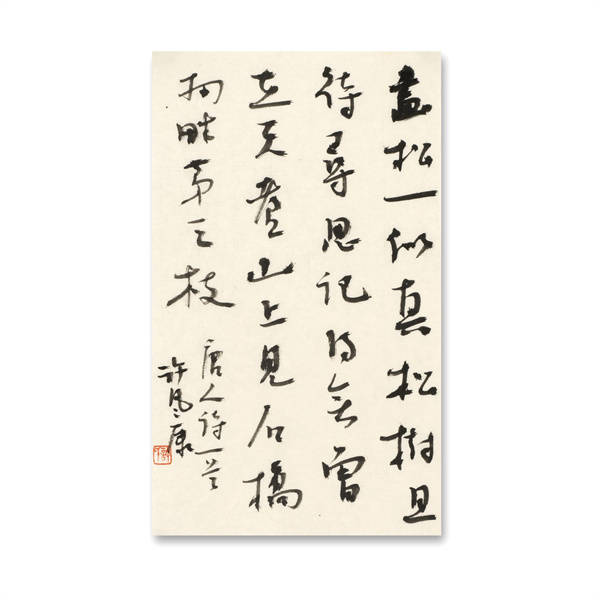 畫松一似真松樹且
待尋思記得無曾
在天臺山上見石橋
南畔第三枝
唐人詩一首
許風康